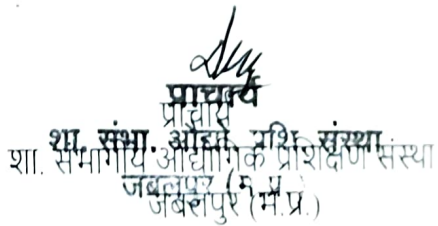 प्राचार्य
प्राचार्य
शा. संभा. औद्यो. प्रशि. संस्था
शा. संभागीय औद्योगिक प्रशिक्षण संस्था
जबलपुर (म.प्र.)
जबलपुर (म.प्र.)